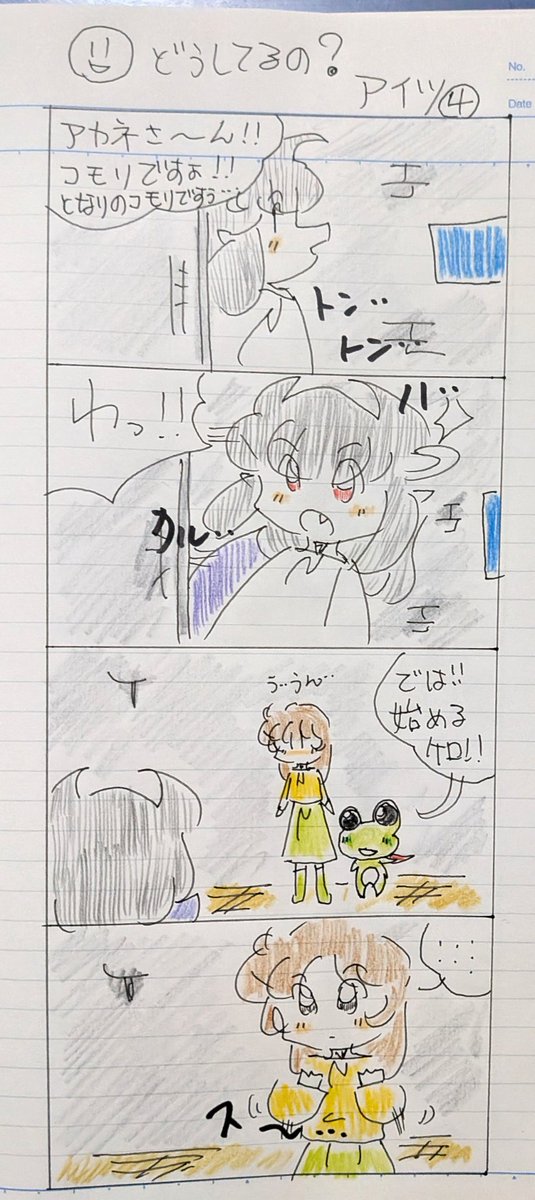 どうしてるの?
アイツ④
No.
Date
アカネさ〜ん!!
コモリですぉ!!
となりのコモリですぅ…
トン‥
トン‥
わっ!!
バ‥
では!!
始める
ケロ!!
う…うん…
ス〜…